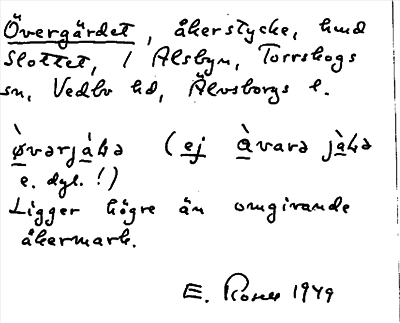 Övergärdet, åkerstycke, hmd
Slottet, 1 Alsbyn, Torrskogs
sn, Vedbo hd, Älvsborgs l.
ø̀vərjáḷə (ej àvarə jàḷə
e. dyl.!)
Ligger högre än omgivande
åkermark.
E. 1949